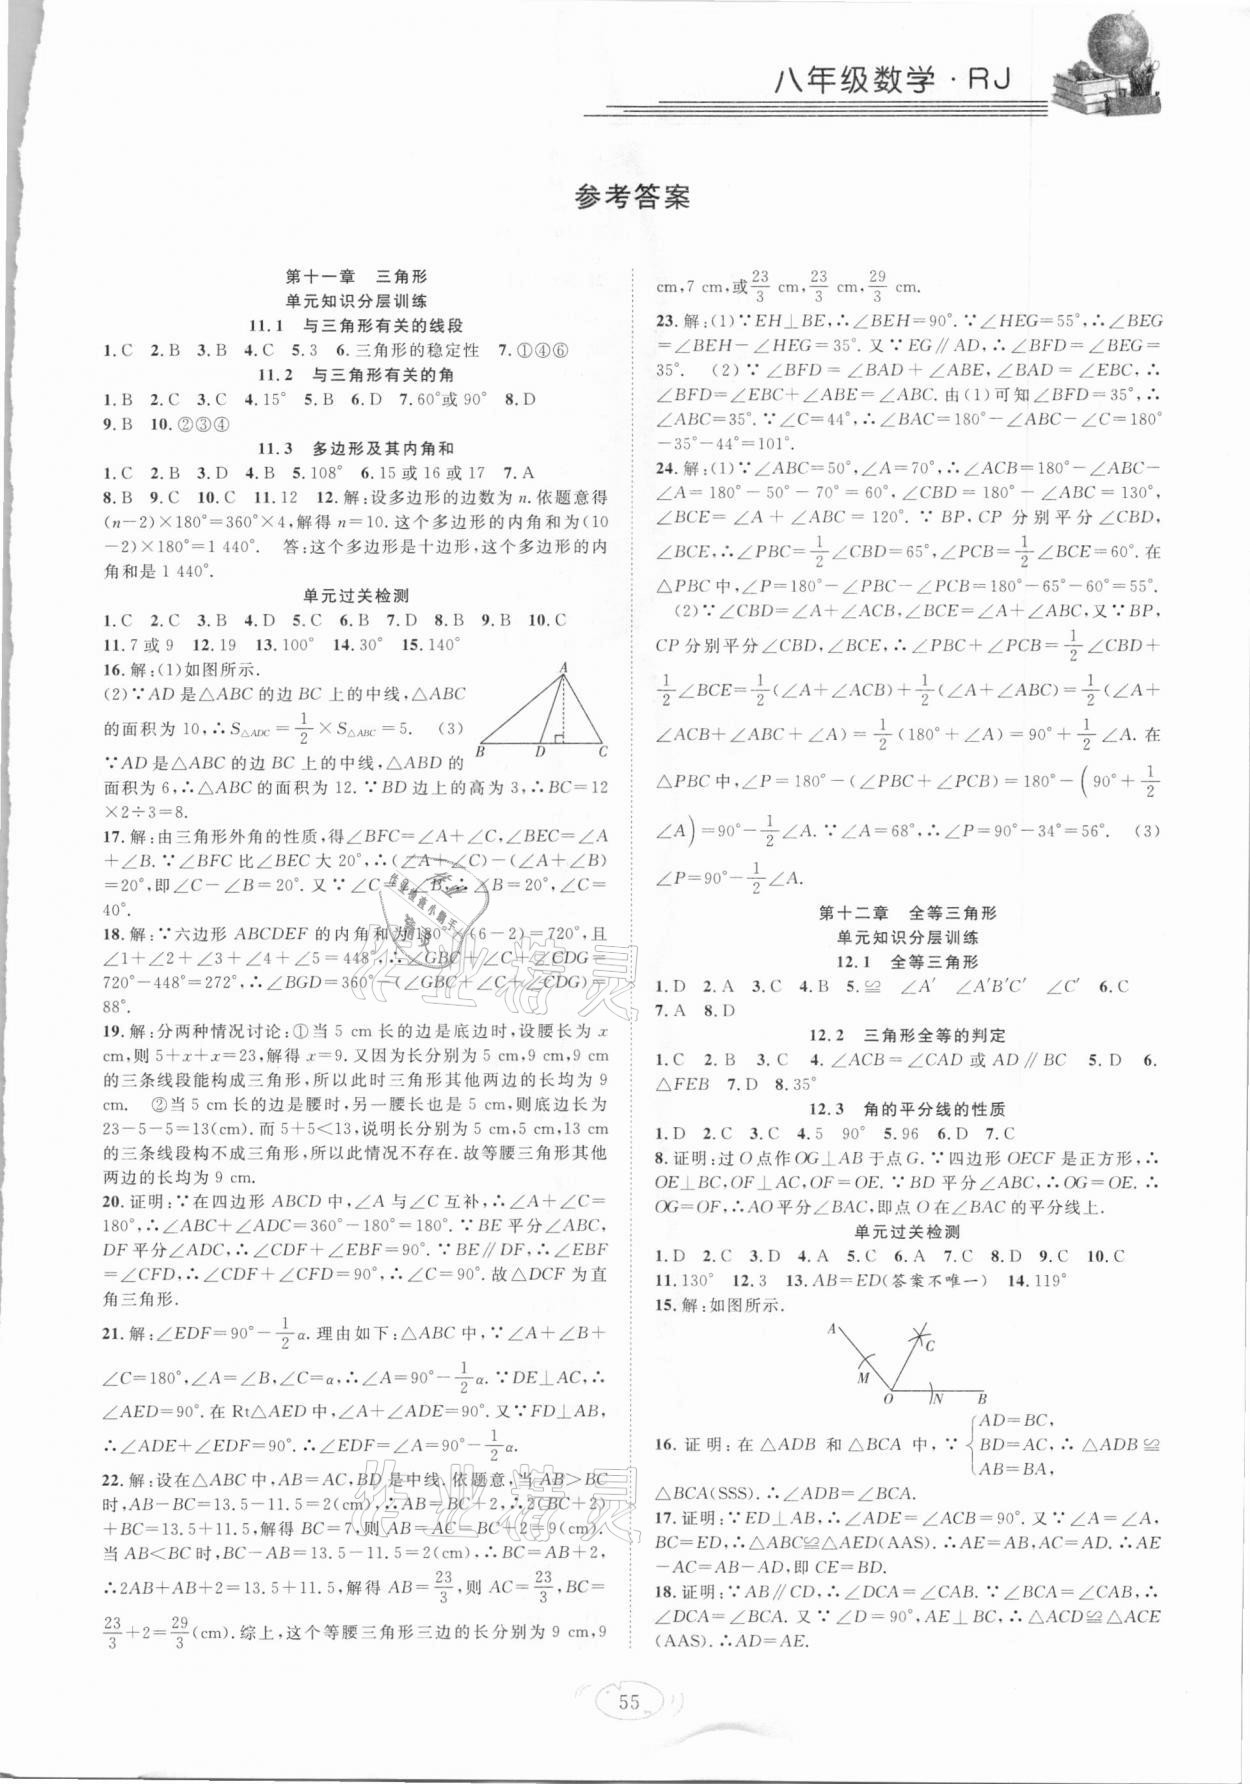 八年级数学·RJ
参考答案
第十一章 三角形
单元知识分层训练
11.1 与三角形有关的线段
1.C 2.B 3.B 4.C 5.3 6.三角形的稳定性 7.①④⑥
11.2 与三角形有关的角
1.B 2.C 3.C 4.15° 5.B 6.D 7.60°或90° 8.D
9.B 10.②③④
11.3 多边形及其内角和
1.C 2.B 3.D 4.B 5.108° 6.15或16或17 7.A
8.B 9.C 10.C 11.12 12.解:设多边形的边数为n.依题意得
(n-2)×180°=360°×4,解得n=10.这个多边形的内角和为(10
-2)×180°=1 440°. 答:这个多边形是十边形,这个多边形的内
角和是1 440°.
单元过关检测
1.C 2.C 3.B 4.D 5.C 6.B 7.D 8.B 9.B 10.C
11.7或9 12.19 13.100° 14.30° 15.140°
16.解:(1)如图所示.
(2)∵AD是△ABC的边BC上的中线,△ABC
的面积为10,∴S△ADC=1/2×S△ABC=5. (3)
∵AD是△ABC的边BC上的中线,△ABD的
面积为6,∴△ABC的面积为12.∵BD边上的高为3,∴BC=12
×2÷3=8.
A
B D C
17.解:由三角形外角的性质,得∠BFC=∠A+∠C,∠BEC=∠A
+∠B.∵∠BFC比∠BEC大20°,∴(∠A+∠C)-(∠A+∠B)
=20°,即∠C-∠B=20°.又∵∠C=2∠B,∴∠B=20°,∠C=
40°.
18.解:∵六边形ABCDEF的内角和为180°×(6-2)=720°,且
∠1+∠2+∠3+∠4+∠5=448°,∴∠GBC+∠C+∠CDG=
720°-448°=272°,∴∠BGD=360°-(∠GBC+∠C+∠CDG)=
88°.
19.解:分两种情况讨论:①当5 cm长的边是底边时,设腰长为x
cm,则5+x+x=23,解得x=9.又因为长分别为5 cm,9 cm,9 cm
的三条线段能构成三角形,所以此时三角形其他两边的长均为9
cm. ②当5 cm长的边是腰时,另一个腰长也是5 cm,则底边长为
23-5-5=13(cm).而5+5<13,说明长分别为5 cm,5 cm,13 cm
的三条线段构不成三角形,所以此情况不存在.故等腰三角形其他
两边的长均为9 cm.
20.证明:∵在四边形ABCD中,∠A与∠C互补,∴∠A+∠C=
180°,∴∠ABC+∠ADC=360°-180°=180°.∵BE平分∠ABC,
DF平分∠ADC,∴∠CDF+∠EBF=90°.∵BE∥DF,∴∠EBF
=∠CFD,∴∠CDF+∠CFD=90°,∴∠C=90°.故△DCF为直
角三角形.
21.解:∠EDF=90°-1/2α.理由如下:△ABC中,∵∠A+∠B+
∠C=180°,∠A=∠B,∠C=α,∴∠A=90°-1/2α.∵DE⊥AC,∴
∠AED=90°.在Rt△AED中,∠A+∠ADE=90°.又∵FD⊥AB,
∴∠ADE+∠EDF=90°.∴∠EDF=∠A=90°-1/2α.
22.解:设在△ABC中,AB=AC,BD是中线.依题意,当AB>BC
时,AB-BC=13.5-11.5=2(cm),∴AB=BC+2,∴2(BC+2)
+BC=13.5+11.5,解得BC=7,则AB=AC=BC+2=9(cm).
当AB<BC时,BC-AB=13.5-11.5=2(cm),∴BC=AB+2,
∴2AB+AB+2=13.5+11.5,解得AB=23/3,则AC=23/3,BC=
23/3+2=29/3(cm).综上,这个等腰三角形三边的长分别为9 cm,9
cm,7 cm,或23/3 cm,23/3 cm,29/3 cm.
23.解:(1)∵EH⊥BE,∴∠BEH=90°.∵∠HEG=55°,∴∠BEG
=∠BEH-∠HEG=35°.又∵EG∥AD,∴∠BFD=∠BEG=
35°. (2)∵∠BFD=∠BAD+∠ABE,∠BAD=∠EBC,∴
∠BFD=∠EBC+∠ABE=∠ABC.由(1)可知∠BFD=35°,∴
∠ABC=35°.∵∠C=44°,∴∠BAC=180°-∠ABC-∠C=180°
-35°-44°=101°.
24.解:(1)∵∠ABC=50°,∠A=70°,∴∠ACB=180°-∠ABC-
∠A=180°-50°-70°=60°,∠CBD=180°-∠ABC=130°,
∠BCE=∠A+∠ABC=120°.∵BP,CP分别平分∠CBD,
∠BCE,∴∠PBC=1/2∠CBD=65°,∠PCB=1/2∠BCE=60°.在
△PBC中,∠P=180°-∠PBC-∠PCB=180°-65°-60°=55°.
(2)∵∠CBD=∠A+∠ACB,∠BCE=∠A+∠ABC,又∵BP,
CP分别平分∠CBD,∠BCE,∴∠PBC+∠PCB=1/2∠CBD+
1/2∠BCE=1/2(∠A+∠ACB)+1/2(∠A+∠ABC)=1/2(∠A+
∠ACB+∠ABC+∠A)=1/2(180°+∠A)=90°+1/2∠A.在
△PBC中,∠P=180°-(∠PBC+∠PCB)=180°-(90°+1/2
∠A)=90°-1/2∠A.∵∠A=68°,∴∠P=90°-34°=56°. (3)
∠P=90°-1/2∠A.
第十二章 全等三角形
单元知识分层训练
12.1 全等三角形
1.D 2.A 3.C 4.B 5.≌ ∠A′ ∠A′B′C′ ∠C′ 6.C
7.A 8.D
12.2 三角形全等的判定
1.C 2.B 3.C 4.∠ACB=∠CAD或AD∥BC 5.D 6.
△FEB 7.D 8.35°
12.3 角的平分线的性质
1.D 2.C 3.C 4.5 90° 5.96 6.D 7.C
8.证明:过O点作OG⊥AB于点G.∵四边形OECF是正方形,∴
OE⊥BC,OF⊥AC,OF=OE.∵BD平分∠ABC,∴OG=OE.∴
OG=OF,∴AO平分∠BAC,即点O在∠BAC的平分线上.
单元过关检测
1.D 2.C 3.D 4.A 5.C 6.A 7.C 8.D 9.C 10.C
11.130° 12.3 13.AB=ED(答案不唯一) 14.119°
15.解:如图所示.
A
C
M
O N B
16.证明:在△ADB和△BCA中,∵{AD=BC,
BD=AC,∴△ADB≌
AB=BA,
△BCA(SSS).∴∠ADB=∠BCA.
17.证明:∵ED⊥AB,∴∠ADE=∠ACB=90°.又∵∠A=∠A,
BC=ED,∴△ABC≌△AED(AAS).∴AE=AB,AC=AD.∴AE
-AC=AB-AD,即CE=BD.
18.证明:∵AB∥CD,∴∠DCA=∠CAB.∵∠BCA=∠CAB,∴
∠DCA=∠BCA.又∵∠D=90°,AE⊥BC,∴△ACD≌△ACE
(AAS).∴AD=AE.
55
作业精灵
作业精灵